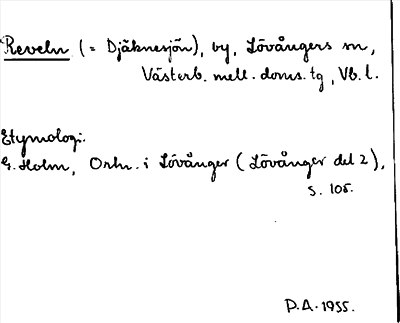 Reveln (= Djäknesjön), by, Lövångers sn,
Västerb. mell. doms. tg, Vb. l.
Etymologi.
G. Holm, Ortn. i Lövånger (Lövånger del 2),
s. 105.
D.A. 1955.